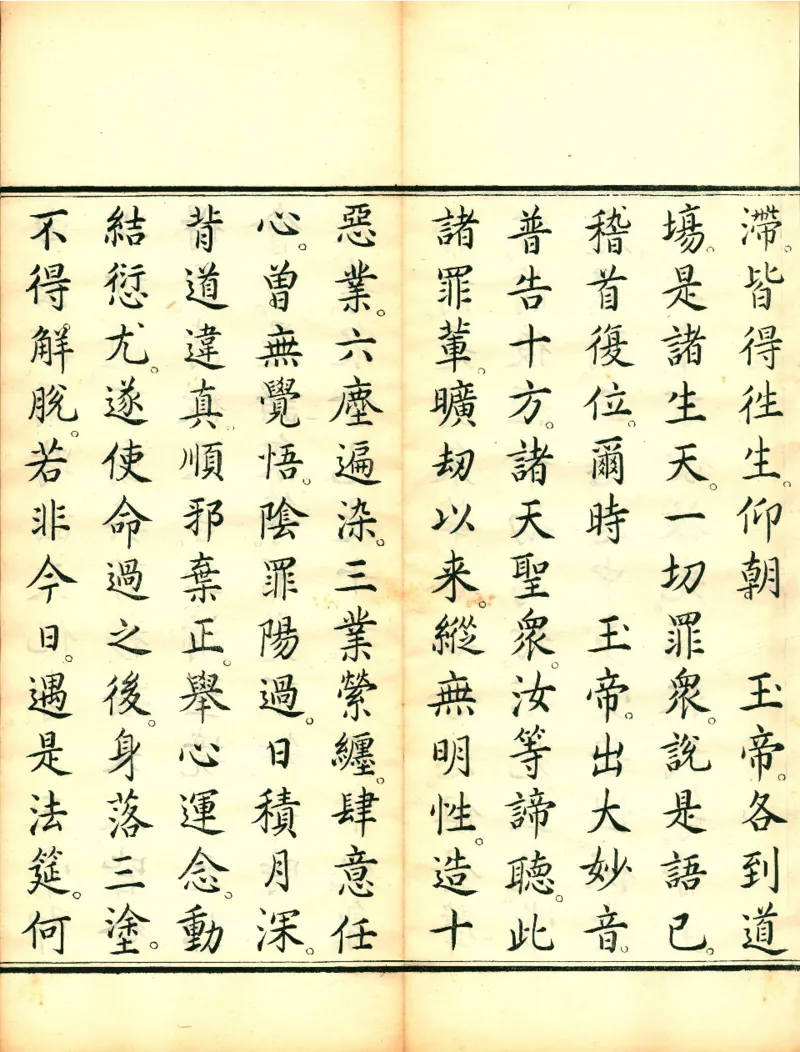 滯。皆得徃生。仰朝　玉帝。各到道
場。是諸生天。一切罪衆。說是語已。
稽首復位。爾時　玉帝。出大妙音。
普告十方。諸天聖衆。汝等諦聽。此
諸罪輩。曠刼以来。縱無明性。造十
惡業。六塵遍染。三業縈纏。肆意任
心。曾無覺悟。陰罪陽過。日積月深。
背道違真。順邪棄正。舉心運念。動
結愆尤。遂使命過之後。身落三塗。
不得解脫。若非今日。遇是法筵。何